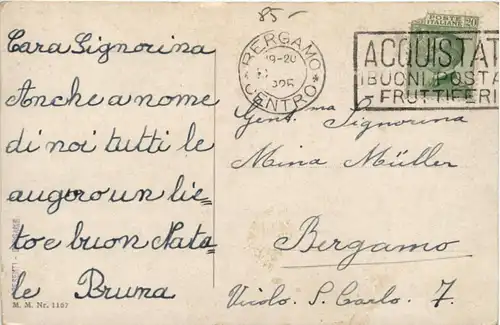 85-
Cara Signorina
Anche a nome
di noi tutti le
auguro un lie-
to e buon Nata-
le Bruna
M. M. Nr. 1187
BERGAMO
19-20
CENTRO
POSTE
ITALIANE
20
ACQUISTAT
I BUONI POSTA
- FRUTTIFERI
Gent.ma Signorina
Mina Müller
Bergamo
Vicolo. S. Carlo. 7.